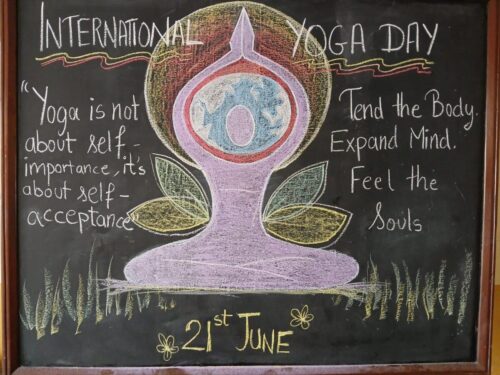 INTERNATIONAL YOGA DAY
"Yoga is not
about self-
importance, it's
about self-
acceptance"
Tend the Body.
Expand Mind.
Feel the
Souls
21st JUNE